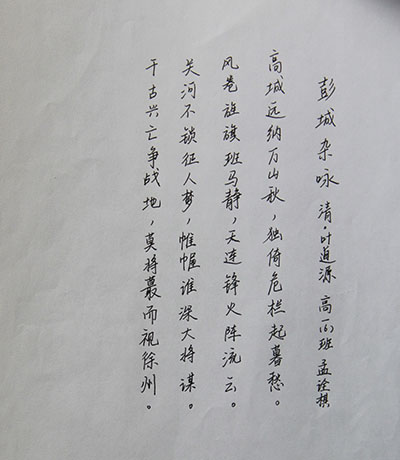 彭城杂咏 清·叶道源 高一班 孟诠棋
高城远纳万山秋，独倚危栏起暮愁。
风卷旌旗班马静，天连锋火阵流云。
关河不锁征人梦，帷幄谁深大将谋。
千古兴亡争战地，莫将蕞而视徐州。